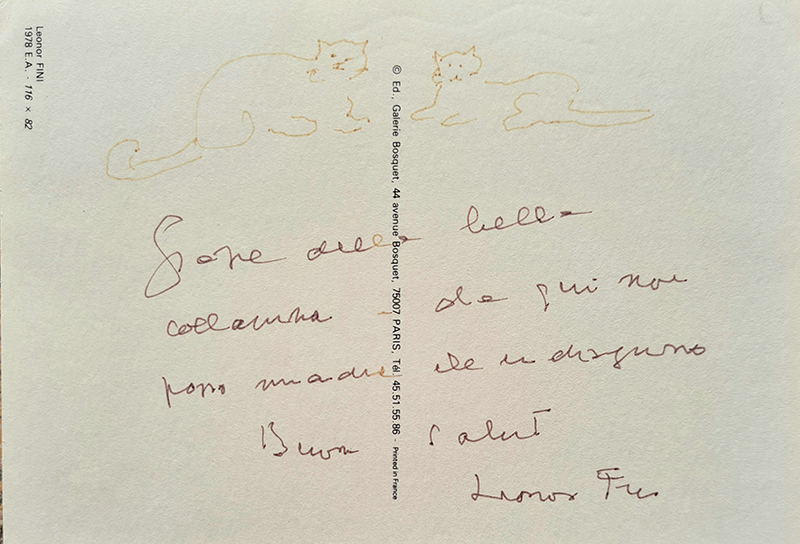 Leonor FINI
1978 E.A. - 116 × 82
© Ed., Galerie Bosquet, 44 avenue Bosquet, 75007 PARIS, Tél. 45.51.55.86 - Printed in France
Grazie della bella
collanina - da qui non
posso mandare che un disegno
Saluti
Leonor Fini